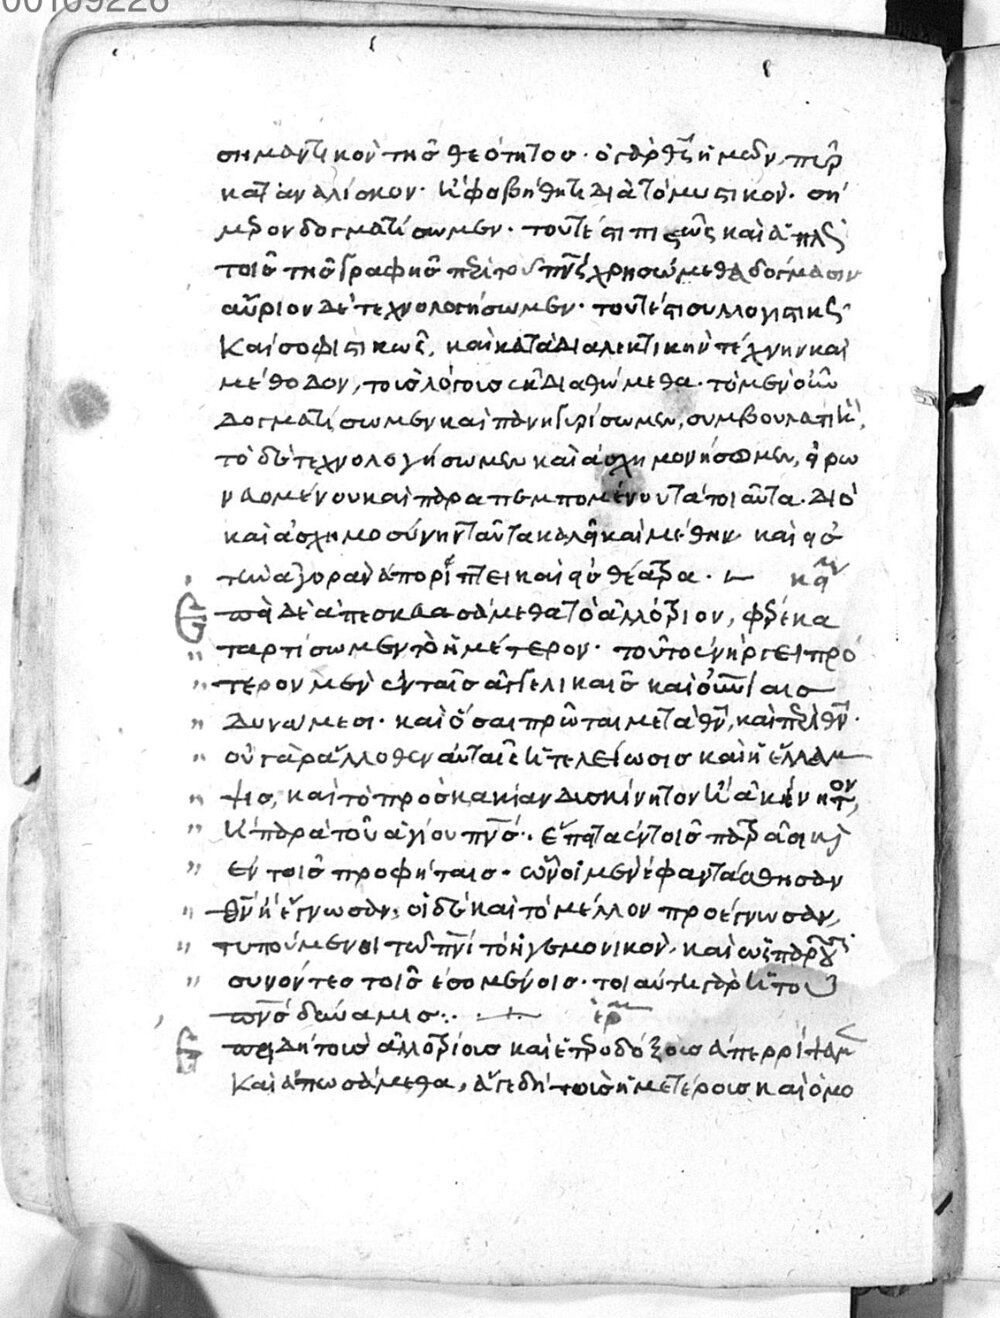 00109226
σημαντικὸν τῆς θεότητος· ὁ γὰρ θς ἡμῶν, πῦρ
καταναλίσκον· κ φοβηθῆτι διὰ τὸ μυστικόν· σή
μερον δογματίσωμεν· τουτέστι πιστῶς καὶ ἁπλῶς
τοῖς τῆς γραφῆς περὶ τοῦ πνς χρησώμεθα δόγμασιν
αὔριον δὲ τεχνολογήσωμεν· τουτέστι συλλογιστικῶς
καὶ σοφιστικῶς, καὶ κατὰ διαλεκτικὴν τέχνην καὶ
μέθοδον, τοῖς λόγοις ἐκδιαθώμεθα· τὸ μὲν οὖν
δογματίσωμεν καὶ πανηγυρίσωμεν, συμβουλατικ
τὸ δὲ τεχνολογήσωμεν καὶ ἀσχημονήσομεν, εἰρω
νευομένου καὶ παραπεμπομένου τὰ τοιαῦτα· διὸ
καὶ ἀσχημοσύνην ταῦτα καλεῖ καὶ μέθην· καὶ εἰς
τὴν ἀγορὰν ἀπορίπτει καὶ εἰς θέατρα· κείμεν
Ἐπεὶ δὲ ἀπεσκευασάμεθα τὸ ἀλλότριον, φέρε κα
ταρτίσωμεν τὸ ἡμέτερον· τοῦτο ἐνήργει πρό
τερον μὲν ἐν ταῖς ἀγγελικαῖς καὶ οὐνίαις
δυνάμεσι· καὶ ὅσαι πρῶται μετὰ θν, καὶ περὶ θν·
οὐ γὰρ ἄλλοθεν αὐταῖς ἡ τελείωσις καὶ ἡ ἔλλαμ
ψις, καὶ τὸ πρὸς κακίαν δυσκίνητον ἢ ἀκίνητον,
ἢ παρὰ τοῦ ἁγίου πνς· ἔπειτα ἐν τοῖς πατράσι κ
ἐν τοῖς προφήταις· ὧν οἱ μὲν ἐφαντάσθησαν
θν ἢ ἔγνωσαν, οἱ δὲ καὶ τὸ μέλλον προέγνωσαν,
τυπούμενοι τῶ πνι τὸ ἡγεμονικόν· καὶ ὡς παροῦσι
συνόντες τοῖς ἐσομένοις· τοιαύτη γὰρ ἡ τοῦ
πνς δύναμις:· ἑρμ
Ἐπεὶ δὴ τοῖς ἀλλοτρίοις καὶ ἑτεροδόξοις ἀπερρίψαμεν
καὶ ἀπωσάμεθα, ἄγε δὴ τοῖς ἡμετέροις καὶ ὁμο